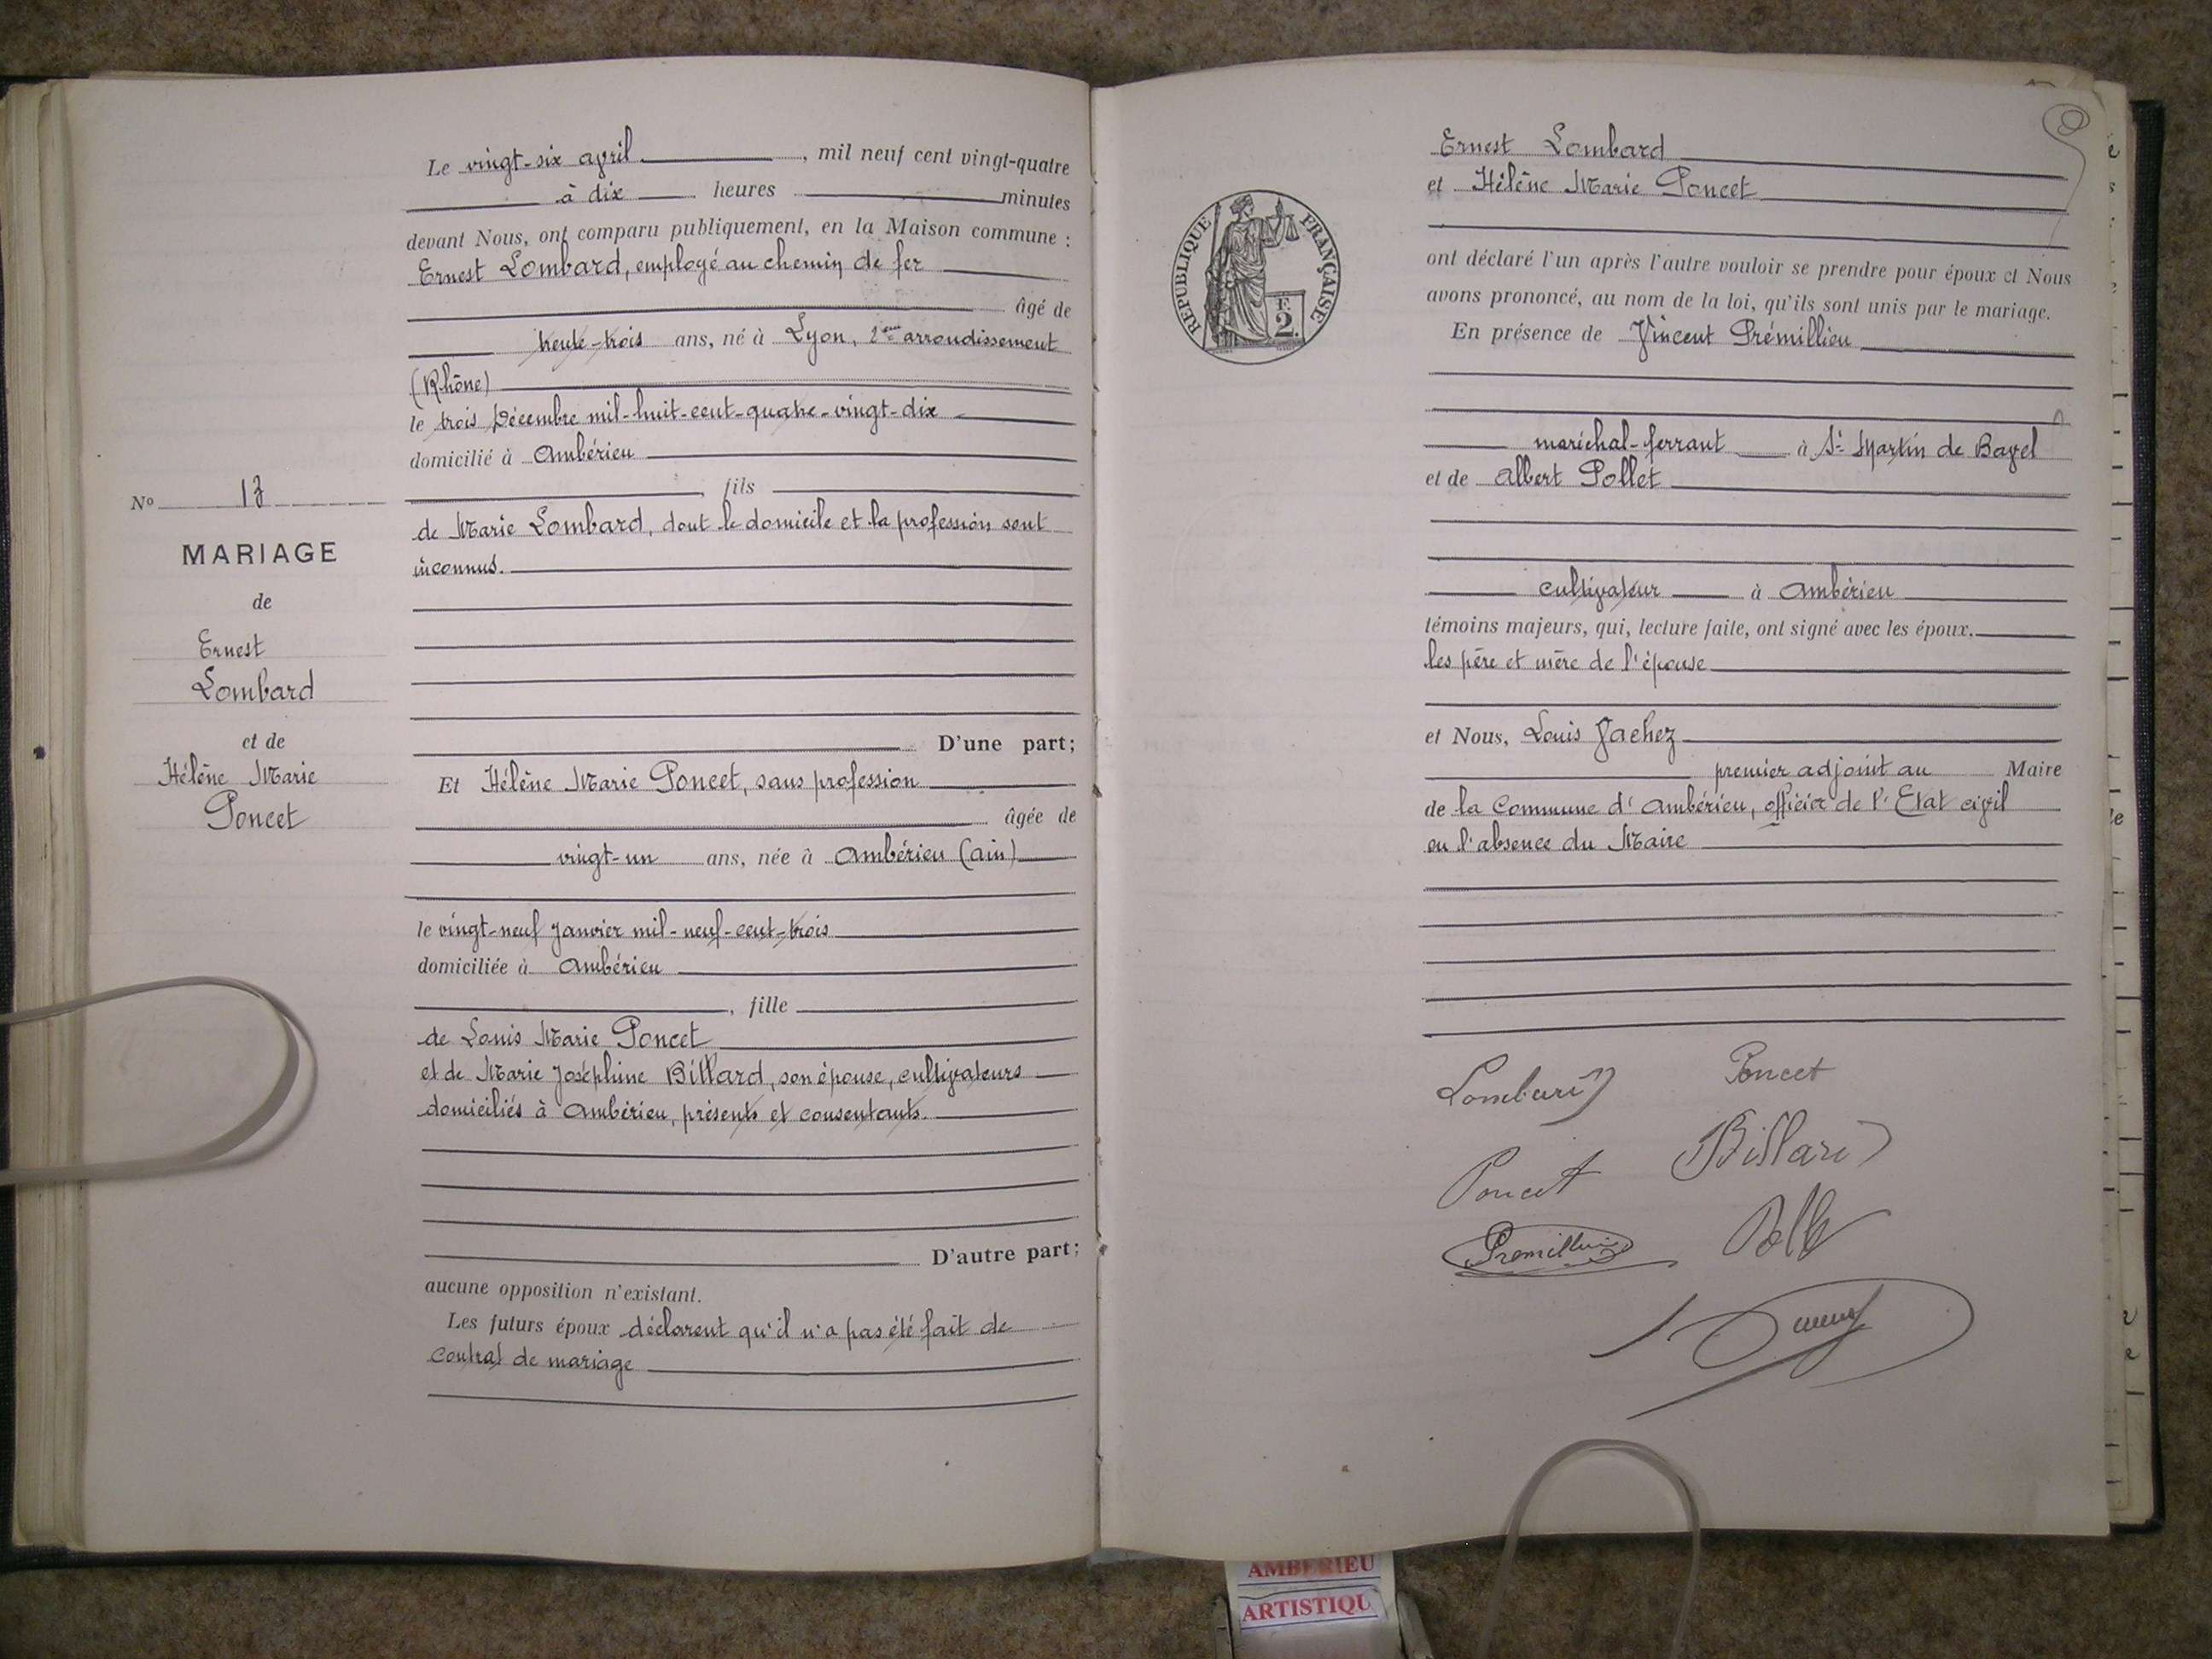 Le vingt-six avril, mil neuf cent vingt-quatre
à dix heures minutes
devant Nous, ont comparu publiquement, en la Maison commune :
Ernest Lombard, employé au chemin de fer
âgé de
trente-trois ans, né à Lyon, 2eme arrondissement
(Rhône)
le trois Décembre mil-huit-cent-quatre-vingt-dix
domicilié à Ambérieu
, fils
de Marie Lombard, dont le domicile et la profession sont
inconnus.
D'une part;
Et Hélène Marie Poncet, sans profession
âgée de
vingt-un ans, née à Ambérieu (Ain)
le vingt-neuf Janvier mil-neuf-cent-trois
domiciliée à Ambérieu
, fille
de Louis Marie Poncet
et de Marie Joséphine Billard, son épouse, cultivateurs
domiciliés à Ambérieu, présents et consentants.
D'autre part;
aucune opposition n'existant.
Les futurs époux déclarent qu'il n'a pas été fait de
contrat de mariage
No 17
MARIAGE
de
Ernest
Lombard
et de
Hélène Marie
Poncet
RÉPUBLIQUE FRANÇAISE
F.
2.
Ernest Lombard
et Hélène Marie Poncet
ont déclaré l'un après l'autre vouloir se prendre pour époux et Nous
avons prononcé, au nom de la loi, qu'ils sont unis par le mariage.
En présence de Vincent Prémillieu
maréchal-ferrant à St Martin de Bavel
et de Albert Pollet
cultivateur à Ambérieu
témoins majeurs, qui, lecture faite, ont signé avec les époux,
les père et mère de l'épouse
et Nous, Louis Jachez
premier adjoint au Maire
de la Commune d'Ambérieu, officier de l'Etat civil
en l'absence du Maire
Lombard Poncet
Poncet Billard
Premillieu
AMBERIEU
ARTISTIQU